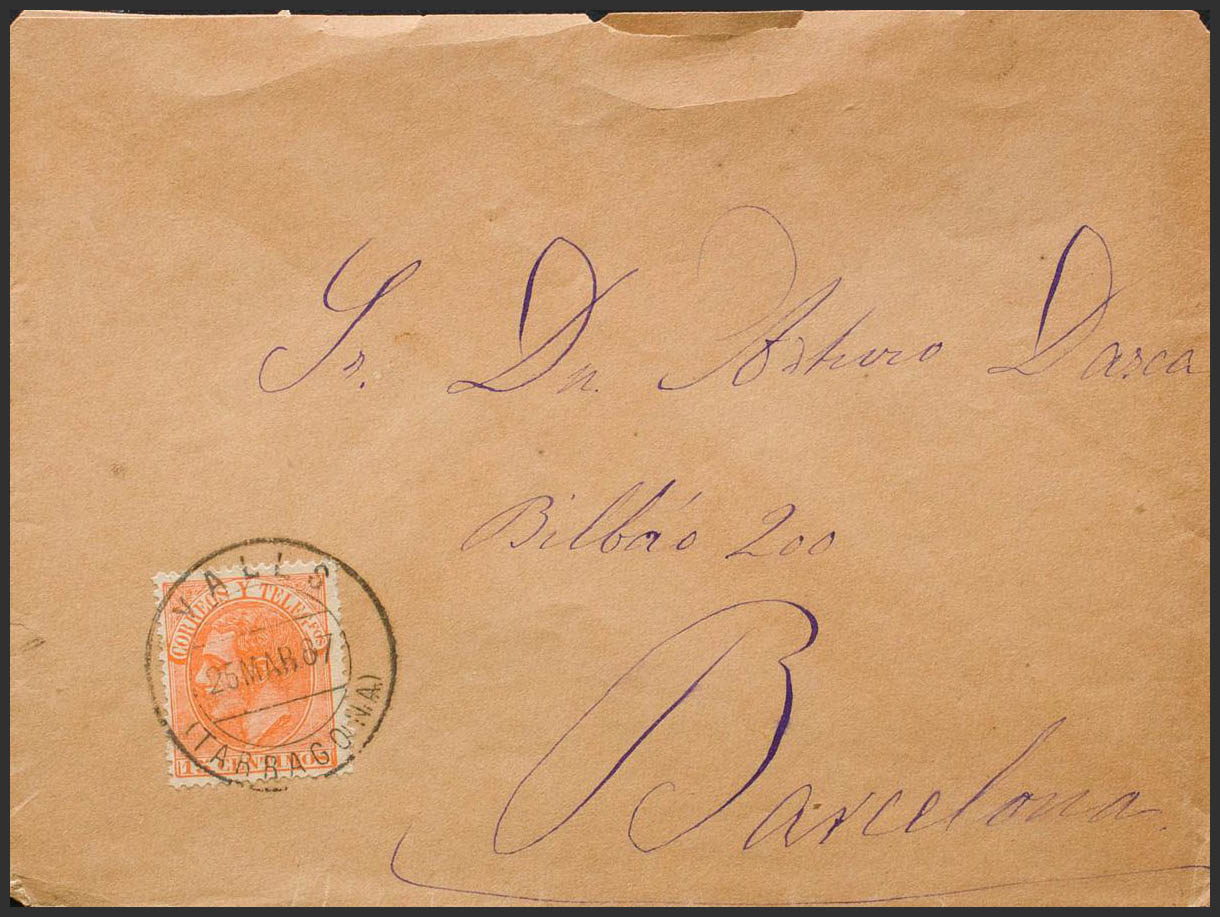 Sr. Dn. Arturo Dasca
Bilbáo 200
Barcelona
VALLS
CORREOS Y TELEGFOS
25 MAR 87
(TARRAGONA)
15 CENTIMOS